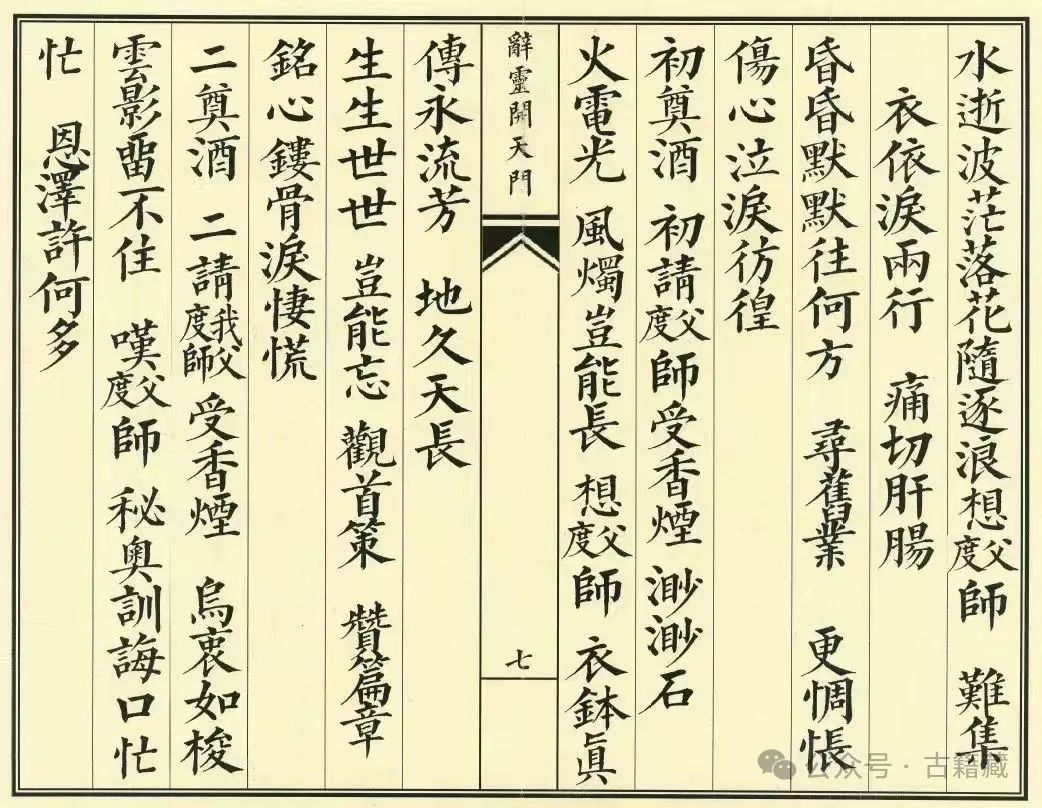 水逝波茫落花隨逐浪想父度師 難集
衣依淚兩行 痛切肝腸
昏昏默默往何方 尋舊業 更惆悵
傷心泣淚彷徨
初奠酒 初請父度師受香煙 渺渺石
火電光 風燭豈能長 想父度師 衣鉢眞
辭靈開天門
七
傳永流芳 地久天長
生生世世 豈能忘 觀首策 贊篇章
銘心鏤骨淚悽慌
二奠酒 二請我父度師受香煙 烏裏如梭
雲影畱不住 嘆父度師 秘奧訓誨口忙
忙 恩澤許何多
公众号 · 古籍藏